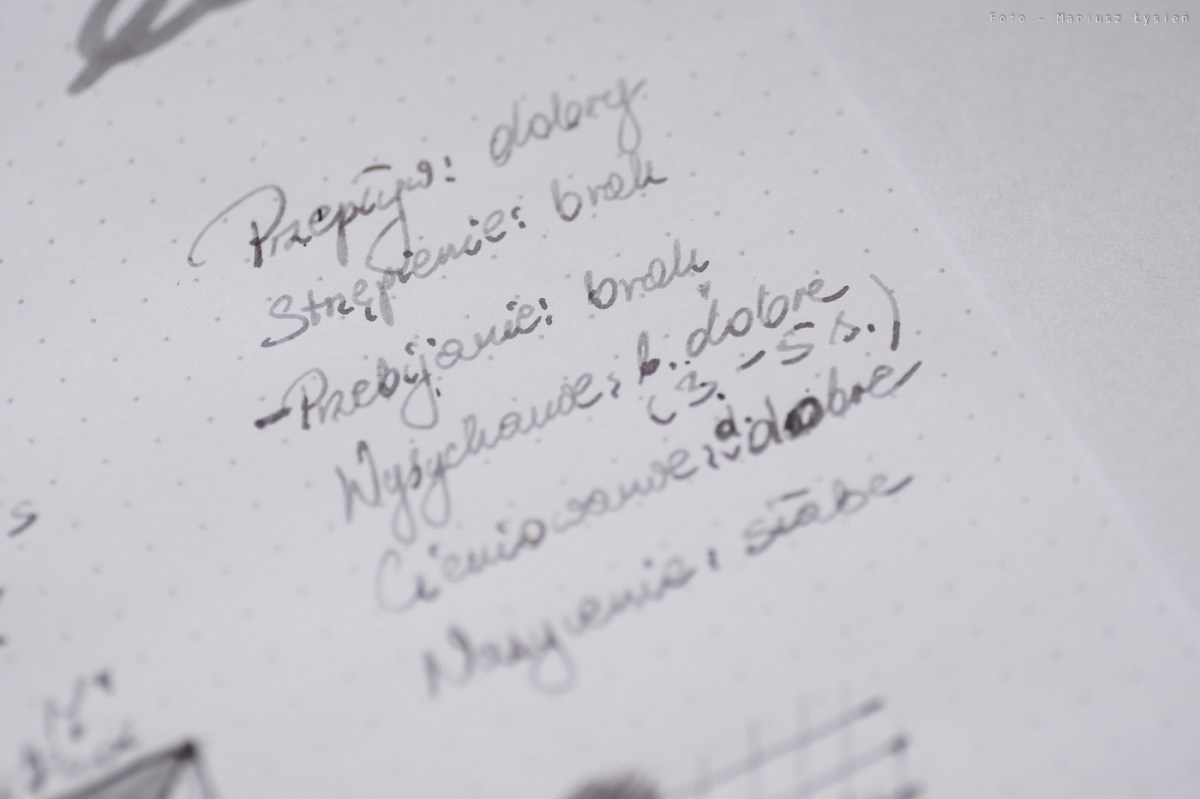 Foto - Mariusz Łysień
Przepływ: dobry
Strzępienie: brak
-Przebijanie: brak
Wysychanie: b. dobre
(3. - 5 s.)
Cieniowanie: b. dobre
Nasycenie: słabe
s